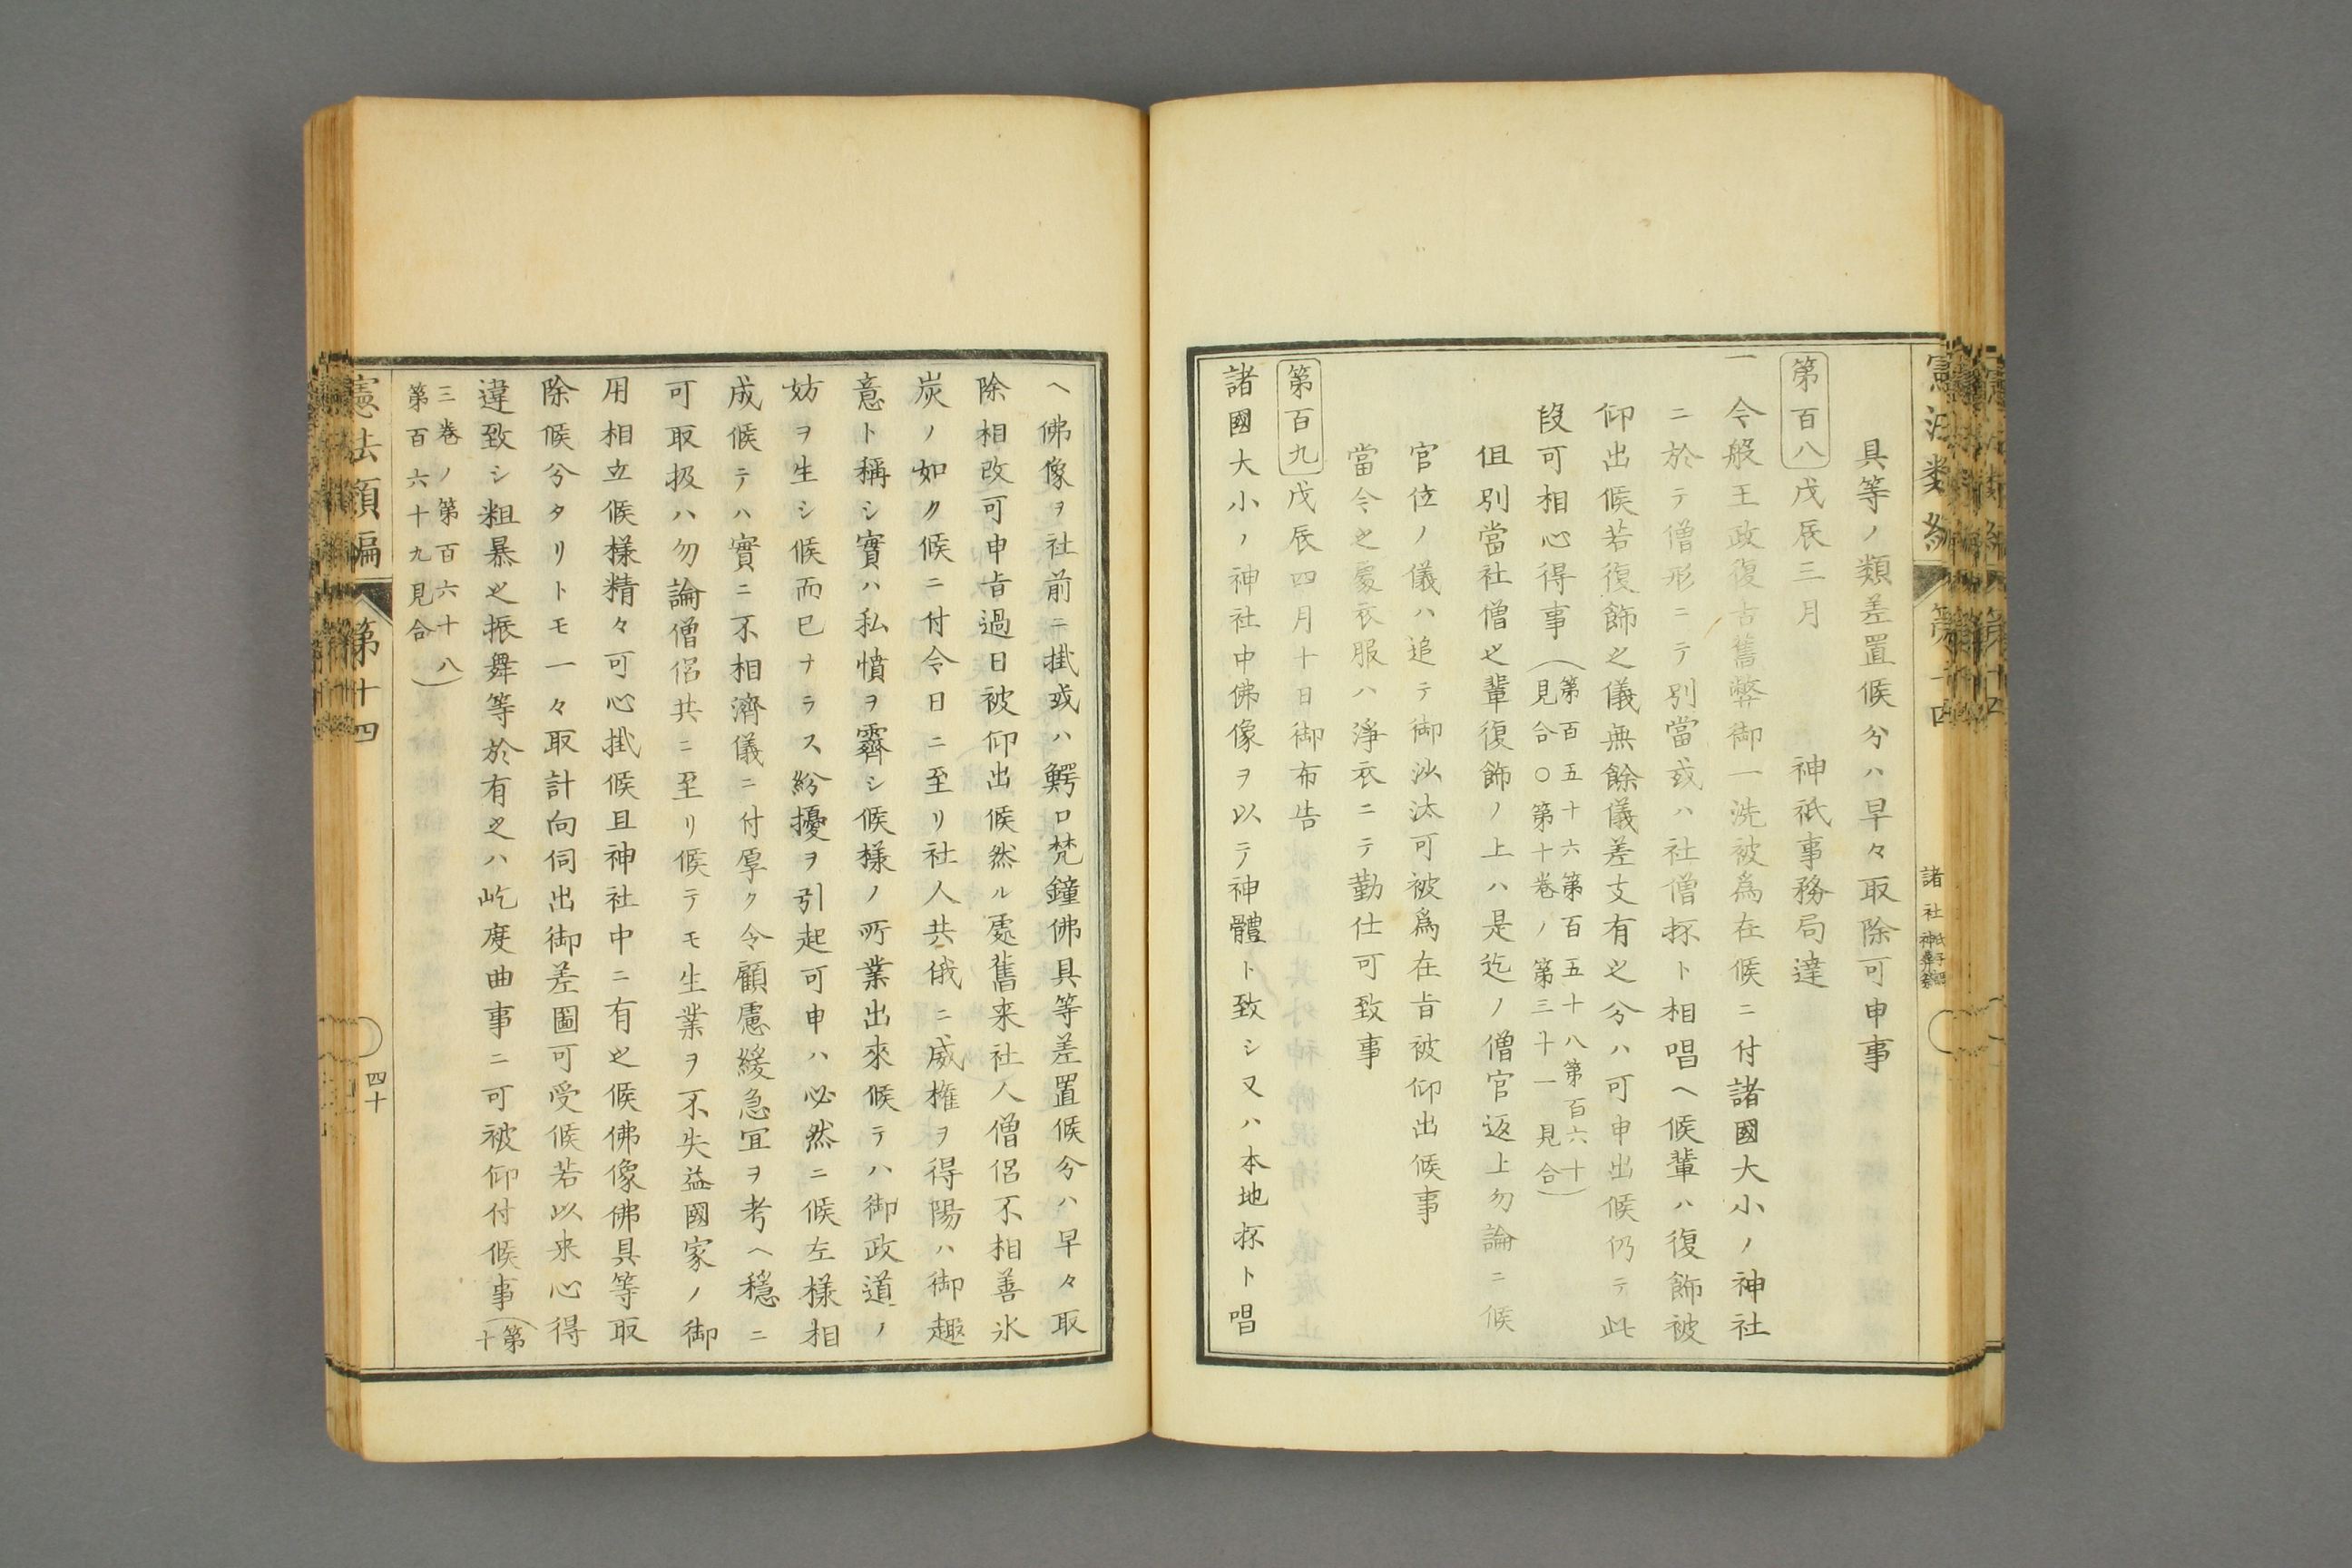 具等ノ類差置候分ハ早々取除可申事
第百八 戊辰三月 神祇事務局達
一今般王政復古舊弊御一洗被爲在候ニ付諸國大小ノ神社
ニ於テ僧形ニテ別當或ハ社僧抔ト相唱ヘ候輩ハ復飾被
仰出候若復飾之儀無餘儀差支有之分ハ可申出候仍テ此
段可相心得事
(第百五十六第百五十八第百六十)
(見合〇第十卷ノ第三十一見合)
但別當社僧之輩復飾ノ上ハ是迄ノ僧官返上勿論ニ候
官位ノ儀ハ追テ御沙汰可被爲在旨被仰出候事
當今之處衣服ハ淨衣ニテ勤仕可致事
第百九 戊辰四月十日御布告
諸國大小ノ神社中佛像ヲ以テ神體ト致シ又ハ本地抔ト唱
諸社
ヘ佛像ヲ社前ニ掛或ハ鰐口梵鐘佛具等差置候分ハ早々取
除相改可申旨過日被仰出候然ル處舊来社人僧侶不相善氷
炭ノ如ク候ニ付今日ニ至リ社人共俄ニ威権ヲ得陽ハ御趣
意ト稱シ實ハ私憤ヲ霽シ候様ノ所業出來候テハ御政道ノ
妨ヲ生シ候而已ナラス紛擾ヲ引起可申ハ必然ニ候左様相
成候テハ實ニ不相濟儀ニ付厚ク令顧慮緩急宜ヲ考ヘ穩ニ
可取扱ハ勿論僧侶共ニ至リ候テモ生業ヲ不失益國家ノ御
用相立候様精々可心掛候且神社中ニ有之候佛像佛具等取
除候分タリトモ一々取計向伺出御差圖可受候若以来心得
違致シ粗暴之振舞等於有之ハ屹度曲事ニ可被仰付候事(第十
三卷ノ第百六十八)
第百六十九見合)
憲法類編 第十四
四十